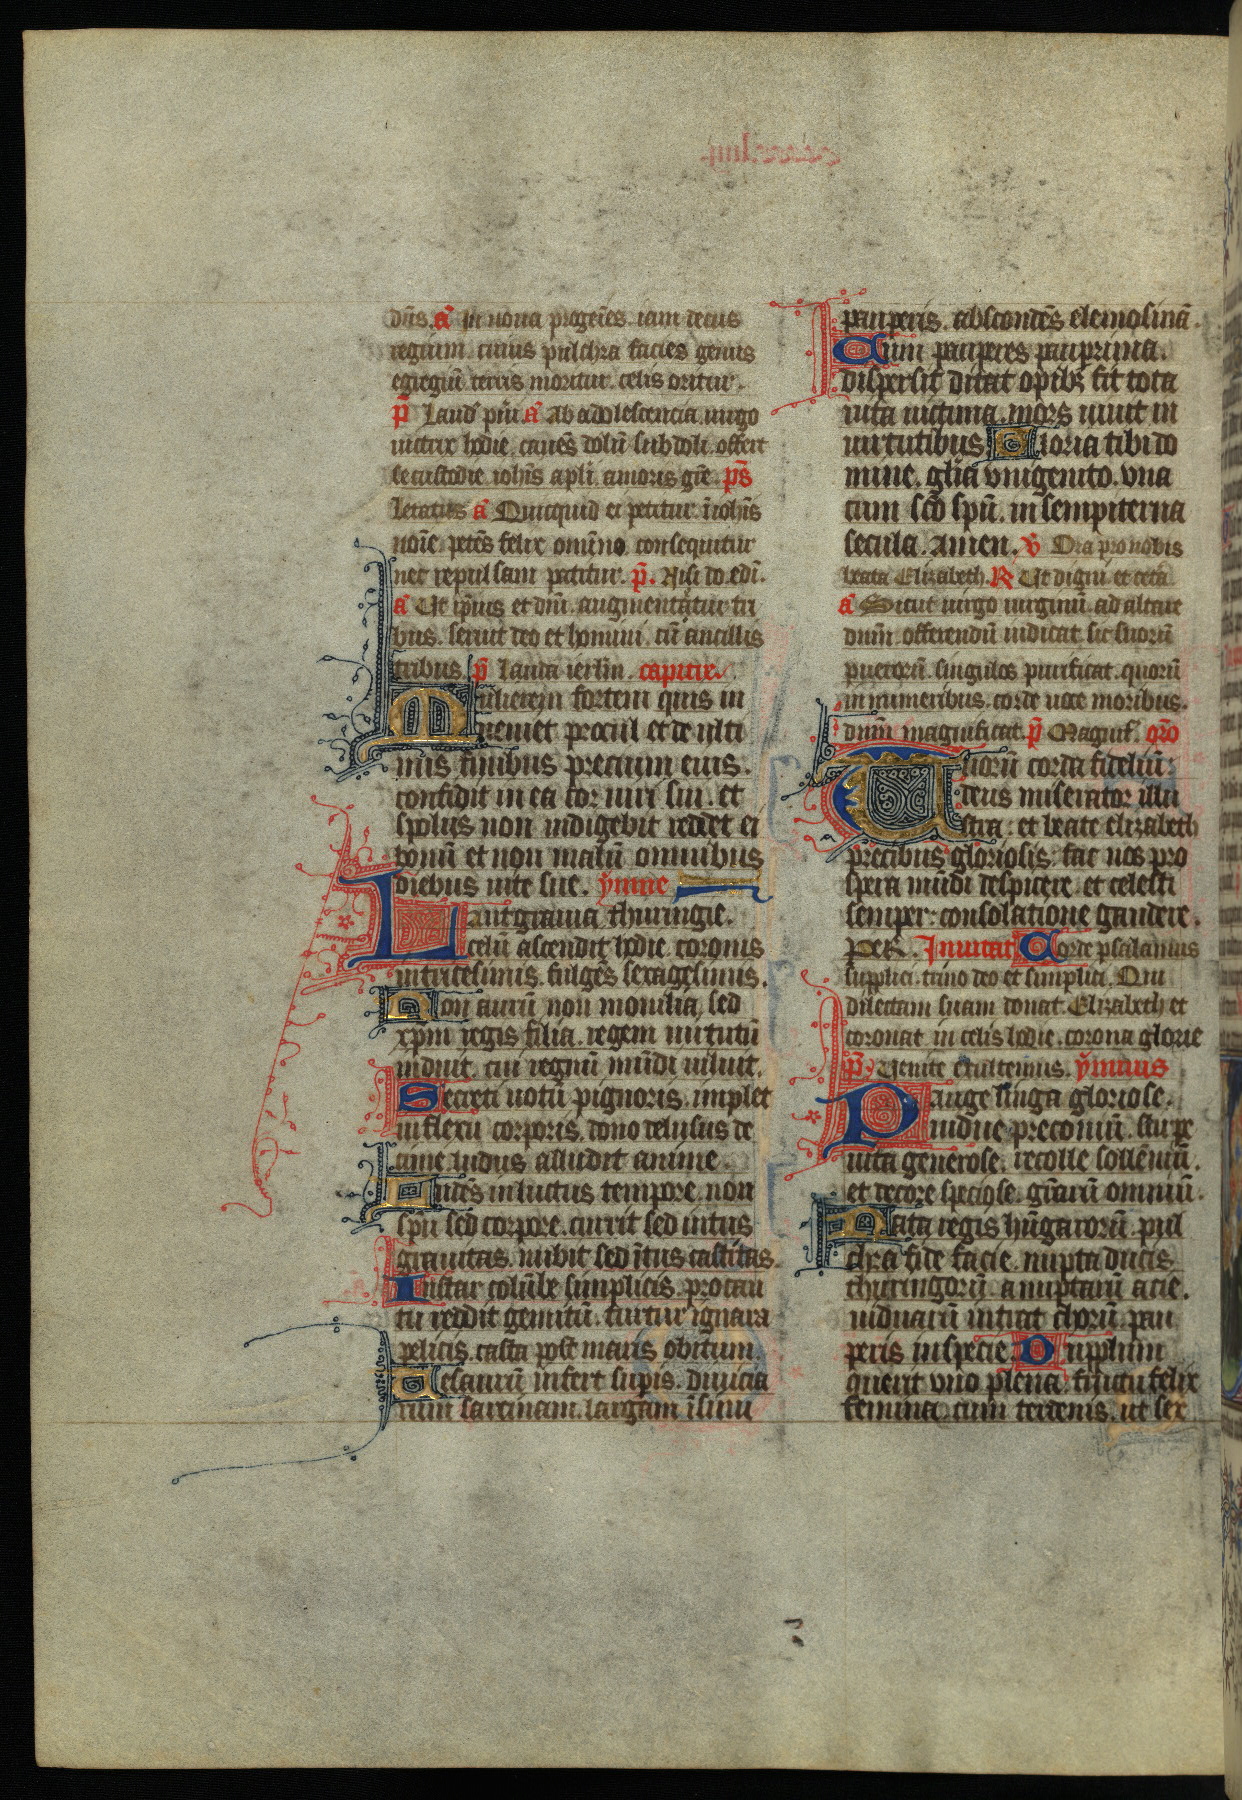 dn̄s. a̅ In noua progeīes. iam decus
regium. cuius pulchra facies genus
egregiū. terris moritur. celis oritur.
p̄ Laud̄ pūi a̅ Ab adolescencia. uirgo
uictrix hodie. cauēs dolū subdoli. offert
se custodie. iohīs apli. amoris gr̄e. p̄s
Letatus a̅ Quicquid ei petitur. ī iohīs
noīe. petēs felix omīno. consequitur
nec repulsam patitur. p̄. Nisi do. edī.
a̅ Ut ip̄ius et dn̄i. augmentātur tri
bus. seruit deo et homini. cū ancillis
tribus. p̄ Lauda ierlm̄. capitlr.
Mulierem fortem quis in
ueniet procul et de ulti
mis finibus precium eius.
confidit in ea cor uiri sui. et
spolus non indigebit reddet ei
bonū et non malū omnibus
diebus uite sue. ȳmne
Lantgrauia thuringie.
celū ascendit hodie. coronis
intricesimis. fulgēs sexagesimis.
Non aurū non monilia, sed
xp̄m regis filia. regem uirtutū
induit. cui regnū mūdi uiluit.
Secreti uotū pignoris. implet
inflexu corporis. dono delusus de
came. ludus alludit anime.
Ridēs in luctus tempore. non
sp̄u sed corpore. currit sed intus
grauitas. nubit sed ītus castitas.
Instar colūbe simplicis. procau
tu reddit gemitū. turtur ignara
pelicis. casta post maris obitum.
Tesaurū infert supis. diuicia
rum sarcinam. largam ī sinu
pauperis. abscondēs elemosinā.
Cum pauperes pauprima.
dispersit ditat opibꝫ fit tota
uita uictima. mors uiuit in
uirtutibus Gloria tibi do
mine. gl̄ia vnigenito. vna
cum sc̄o sp̄u. in sempiterna
secula. Amen. v̄ Ora pro nobis
beata Elizabeth. R Ut digni et cetā
a̅ Sicut uirgo uirginū. ad altare
dnm̄. offerendū indicat. sic suorū
puerorū singulos purificat. quorū
in numeribus. corde uoce moribus.
dnm̄ magnificat. p̄ Magnif. or̄o
Tuorū corda fideliū:
deus miserator illu
stra: et beate elizabeth
precibus gloriosis. fac nos pro
spera mūdi despicere. et celesti
semper: consolatione gaudere.
PeR. Inuitat Corde psallamus
supplici. trino deo et simplici. Qui
dilectam suam donat. Elizabeth et
coronat in celis hodie. corona glorie
p̄. Uenite exultemus. ȳmnus
Pange lingua gloriose.
uidue preconiū. stirpe
uita generose. recolle sollēniā.
et decore speciose. grārū omniū.
Nata regis hūgarorū. pul
chra fide facie. nupta ducis
thuringorū. a nuptarū acie.
uiduarū intrat chorū. pau
peris in specie. Dupplum
querit vno plena. fructu felix
femina. cum terdenis. ut sex